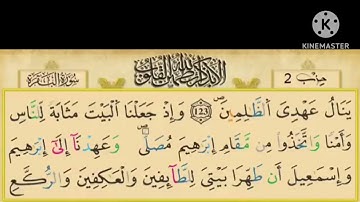 KINEMASTER
سُورَةُ الْبَقَرَة
أَلَا بِذِكْرِ اللَّهِ تَطْمَئِنُّ الْقُلُوبُ
2
يَنَالُ عَهْدِى الظَّٰلِمِينَ ۝123 وَإِذْ جَعَلْنَا الْبَيْتَ مَثَابَةً لِّلنَّاسِ
وَأَمْنًا وَاتَّخِذُوا مِن مَّقَامِ إِبْرَٰهِيمَ مُصَلًّى ۖ وَعَهِدْنَآ إِلَىٰٓ إِبْرَٰهِيمَ
وَإِسْمَٰعِيلَ أَن طَهِّرَا بَيْتِىَ لِلطَّآئِفِينَ وَالْعَٰكِفِينَ وَالرُّكَّعِ